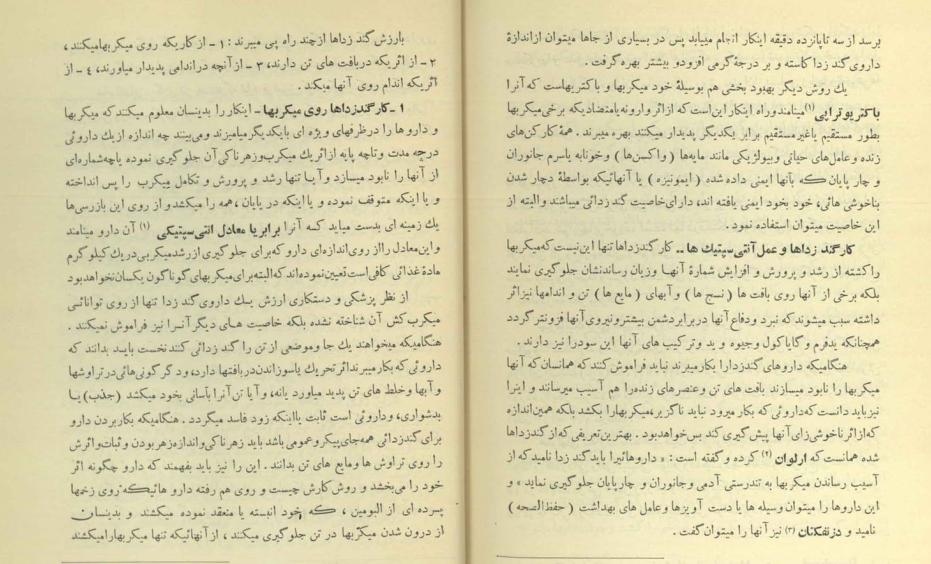 برسد از سه تا پانزده دقیقه اینکار انجام مییابد پس در بسیاری از جاها میتوان از اندازهٔ
داروی گند زدا کاسته و بر درجهٔ گرمی افزود و بیشتر بهره گرفت .
یك روش دیگر بهبود بخشی هم بوسیلهٔ خود میکربها و باکتریهاست که آنرا
باکتریوتراپی (۱) مینامند و راه اینکار این است که از اثر وارونه یا متضادیکه برخی میکربها
بطور مستقیم یا غیر مستقیم برابر یکدیگر پدیدار میکنند بهره میبرند . همهٔ کارکن‌های
زنده و عامل‌های حیاتی و بیولژیکی مانند مایه‌ها ( واکسن‌ها ) و خونابه یا سرم جانوران
و چار پایان که بآنها ایمنی داده شده ( ایمونیزه ) یا آنهائیکه بواسطهٔ دچار شدن
بناخوشی هائی، خود بخود ایمنی یافته اند، دارای خاصیت گند زدائی میباشند و البته از
این خاصیت میتوان استفاده نمود .
کار گند زداها و عمل آنتی سپتیك ها ــ کار گندزداها تنها این نیست که میکربها
را کشته از رشد و پرورش و افزایش شمارهٔ آنها و زیان رساندنشان جلوگیری نمایند
بلکه برخی از آنها روی بافت ها ( نسج ها ) و آبهای ( مایع ها ) تن و اندامها نیز اثر
داشته سبب میشوند که نبرد و دفاع آنها در برابر دشمن بیشتر و نیروی آنها فزونتر گردد
همچنانکه یدفرم و گایاکول و جیوه و ید و ترکیب های آنها این سود را نیز دارند .
هنگامیکه داروهای گندزدا را بکار میبرند نباید فراموش کنند که همانسان که آنها
میکربها را نابود میسازند بافت های تن و عنصرهای زنده را هم آسیب میرسانند و اینرا
نیز باید دانست که داروئی که بکار میرود نباید ناگزیر، میکربها را بکشد بلکه همین اندازه
که از اثر ناخوشی زای آنها پیش گیری کند بس خواهد بود . بهترین تعریفی که از گندزداها
شده همانست که ارلوان (۲) کرده و گفته است : « داروهائیرا باید گند زدا نامید که از
آسیب رساندن میکربها به تندرستی آدمی و جانوران و چارپایان جلوگیری نماید » و
این داروها را میتوان وسیله ها یا دست آویزها و عامل های بهداشت ( حفظ الصحه )
نامید و دزنفکتان (۳) نیز آنها را میتوان گفت .
بارزش گند زداها از چند راه پی میبرند : ۱ ــ از کاریکه روی میکربها میکنند ،
۲ ــ از اثریکه در بافت های تن دارند، ۳ ــ از آنچه در اندامی پدیدار میاورند، ٤ ــ از
اثریکه اندام روی آنها میکند .
۱ ــ کار گندزداها روی میکربها ــ اینکار را بدینسان معلوم میکنند که میکربها
و داروها را در ظرفهای ویژه ای با یکدیگر میامیزند و می‌بینند چه اندازه از یك داروئی
در چه مدت و تا چه پایه از اثر یك میکرب و زهرناکی آن جلوگیری نموده یا چه شماره‌ای
از آنها را نابود میسازد و آیا تنها رشد و پرورش و تکامل میکرب را پس انداخته
و یا اینکه متوقف نموده و یا اینکه در پایان ، همه را میکشد و از روی این بازرسی‌ها
یك زمینه‌ای بدست میاید که آنرا برابر یا معادل انتی سپتیکی (۱) آن دارو مینامند
و این معادل را از روی اندازه‌ای دارو که برای جلوگیری از رشد میکربی در یك کیلوگرم
مادهٔ غذائی کافی است تعیین نموده‌اند که البته برای میکربهای گوناگون یکسان نخواهد بود
از نظر پزشکی و دستکاری ارزش یك داروی گند زدا تنها از روی توانائی
میکرب کش آن شناخته نشده بلکه خاصیت های دیگر آنرا نیز فراموش نمیکنند .
هنگامیکه میخواهند یك جا و موضعی از تن را گند زدائی کنند نخست باید بدانند که
داروئی که بکار میبرند اثر تحریك یا سوزاندن در بافتها دارد، و دگرگونی‌هائی در تراوشها
و آبها و خلط های تن پدید میاورد یا نه، و آیا تن آنرا بآسانی بخود میکشد (جذب) یا
بدشواری، و داروئی است ثابت یا اینکه زود فاسد میگردد . هنگامیکه بکار بردن دارو
برای گندزدائی همه جای پیکر و عمومی باشد باید زهرناکی و اندازه زهر بودن و ثبات و اثرش
را روی تراوش ها و مایع های تن بدانند . این را نیز باید بفهمند که دارو چگونه اثر
خود را می‌بخشد و روش کارش چیست و روی هم رفته دارو هائیکه روی زخمها
پرده ای از البومین ، که خود انبسته یا منعقد نموده میکشند و بدینسان
از درون شدن میکربها در تن جلوگیری میکنند ، از آنهائیکه تنها میکربها را میکشند